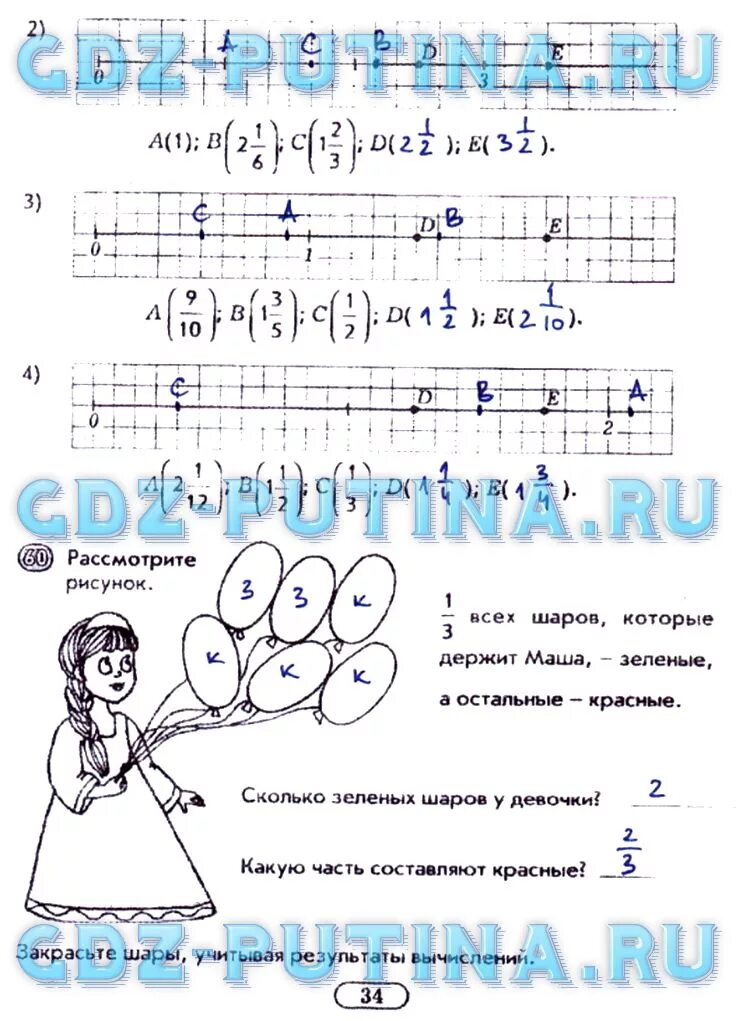 2)
A C B D E
0 3
GDZ-PUTINA.RU
A(1); B(2 1/6); C(1 2/3); D(2 1/2); E(3 1/2).
3)
C A D B E
0 1
A(9/10); B(1 3/5); C(1/2); D(1 1/2); E(2 1/10).
4)
C D B E A
0 2
A(2 1/12); B(1 1/2); C(1/3); D(1 1/4); E(1 3/4).
GDZ-PUTINA.RU
60 Рассмотрите
рисунок.
З З К
К К К
1/3 всех шаров, которые
держит Маша, – зеленые,
а остальные – красные.
Сколько зеленых шаров у девочки? 2
Какую часть составляют красные? 2/3
GDZ-PUTINA.RU
Закрасьте шары, учитывая результаты вычислений.
34